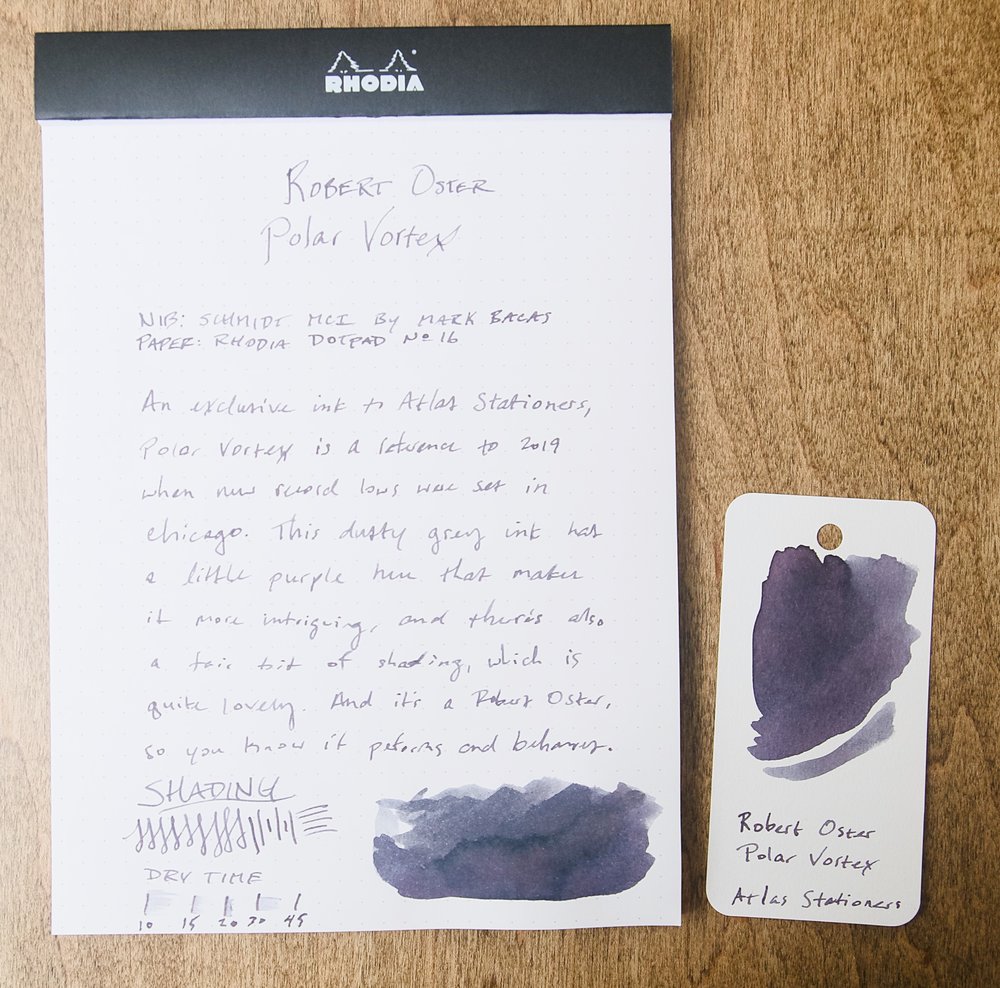 RHODIA
ROBERT OSTER
Polar Vortex
NIB: SCHMIDT MCI BY MARK BACAS
PAPER: RHODIA DOTPAD Nº 16
An exclusive ink to Atlas Stationers,
Polar Vortex is a reference to 2019
when new record lows were set in
chicago. This dusty grey ink has
a little purple hue that makes
it more intriguing, and there's also
a fair bit of shading, which is
quite lovely. And it's a Robert Oster,
so you know it peforms and behaves.
SHADING
DRY TIME
10 15 20 30 45
Robert Oster
Polar Vortex
Atlas Stationers